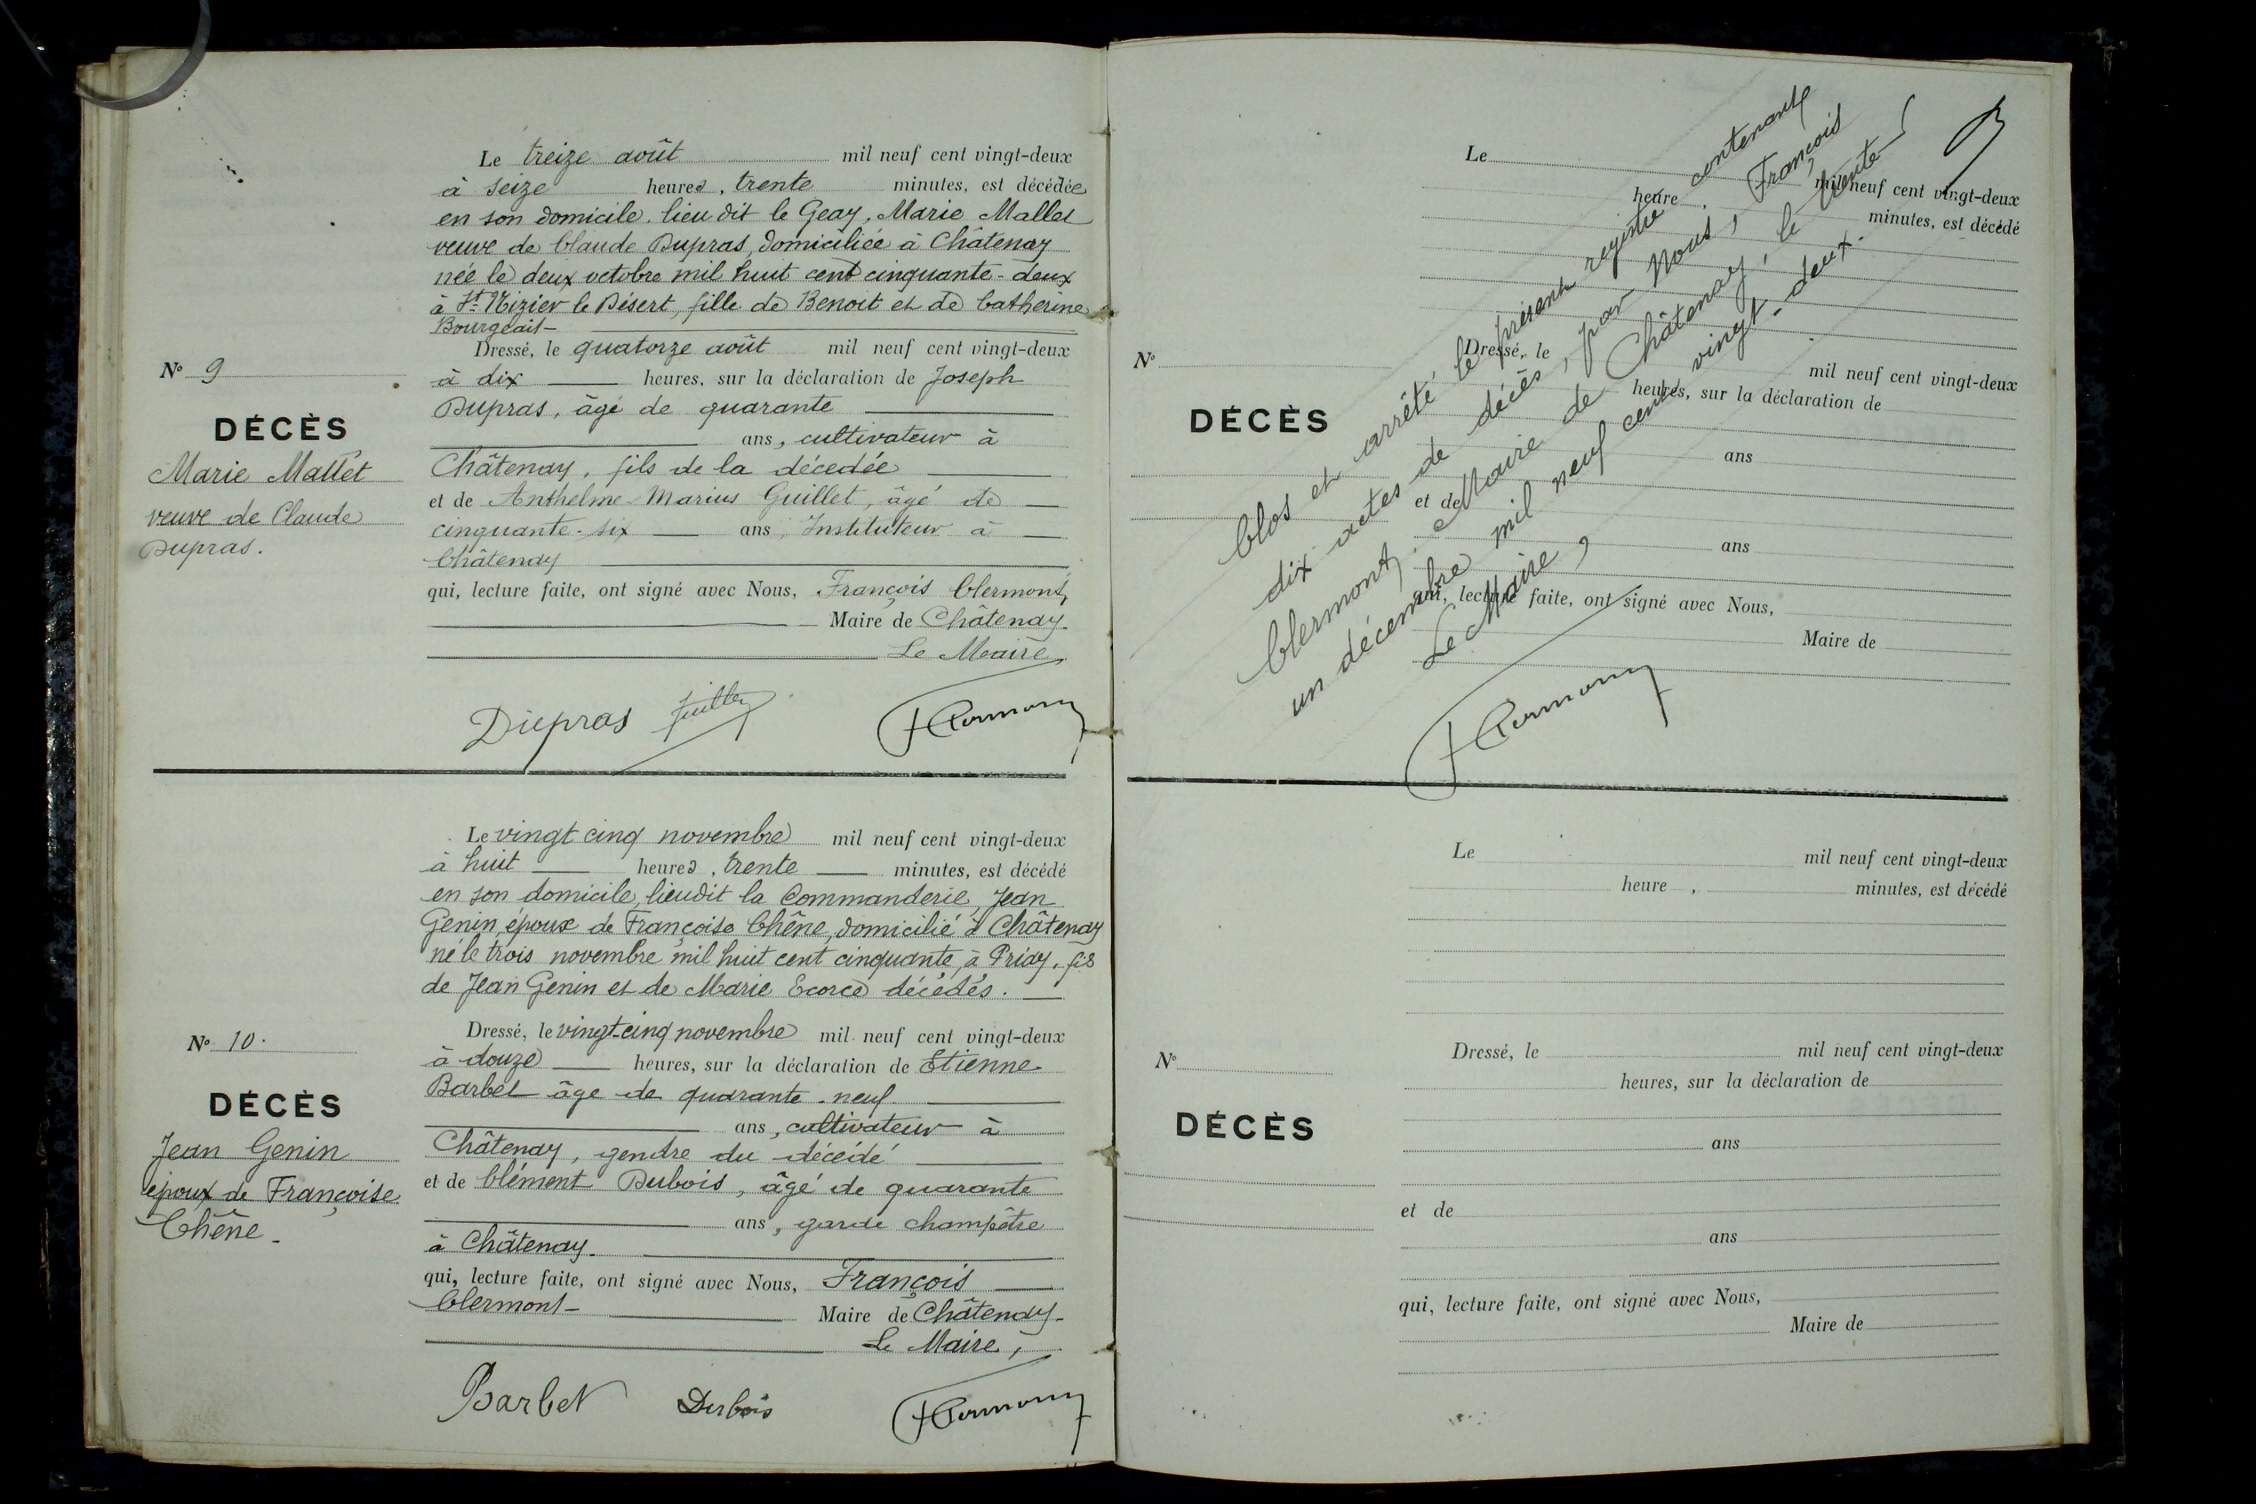 Le treize août mil neuf cent vingt-deux
à seize heures, trente minutes, est décédée
en son domicile, lieu dit le Geay, Marie Mallet
veuve de Claude Dupras, domiciliée à Châtenay
née le deux octobre mil huit cent cinquante-deux
à St Nizier le Désert, fille de Benoit et de Catherine
Bourgeais
Dressé, le quatorze août mil neuf cent vingt-deux
à dix heures, sur la déclaration de Joseph
Dupras, âgé de quarante
ans, cultivateur à
Châtenay, fils de la décedée
et de Anthelme Marius Guillet, âgé de
cinquante-six ans, Instituteur à
Châtenay
qui, lecture faite, ont signé avec Nous, François Clermont,
Maire de Châtenay.
Le Maire,
Dupras Guillet FClermont
N° 9
DÉCÈS
Marie Mallet
veuve de Claude
Dupras.
Le vingt cinq novembre mil neuf cent vingt-deux
à huit heures, trente minutes, est décédé
en son domicile, lieudit la Commanderie, Jean
Genin, époux de Françoise Chêne, domicilié à Châtenay
né le trois novembre mil huit cent cinquante, à Priay, fils
de Jean Genin et de Marie Ecorce décédés.
Dressé, le vingt-cinq novembre mil neuf cent vingt-deux
à douze heures, sur la déclaration de Etienne
Barbet âge de quarante-neuf
ans, cultivateur à
Châtenay, gendre du décédé
et de Clément Dubois, âgé de quarante
ans, garde champêtre
à Châtenay.
qui, lecture faite, ont signé avec Nous, François
Clermont Maire de Châtenay.
Le Maire,
Barbet Dubois FClermont
N° 10.
DÉCÈS
Jean Genin
époux de Françoise
Chêne.
Clos et arrêté le présent registre contenant
dix actes de décès, par Nous, François
Clermont, Maire de Châtenay, le trente
un décembre mil neuf cent vingt-deux.
Le Maire,
FClermont
Le mil neuf cent vingt-deux
heure , minutes, est décédé
Dressé, le mil neuf cent vingt-deux
heures, sur la déclaration de
ans
et de
ans
qui, lecture faite, ont signé avec Nous,
Maire de
N°
DÉCÈS
Le mil neuf cent vingt-deux
heure , minutes, est décédé
Dressé, le mil neuf cent vingt-deux
heures, sur la déclaration de
ans
et de
ans
qui, lecture faite, ont signé avec Nous,
Maire de
N°
DÉCÈS